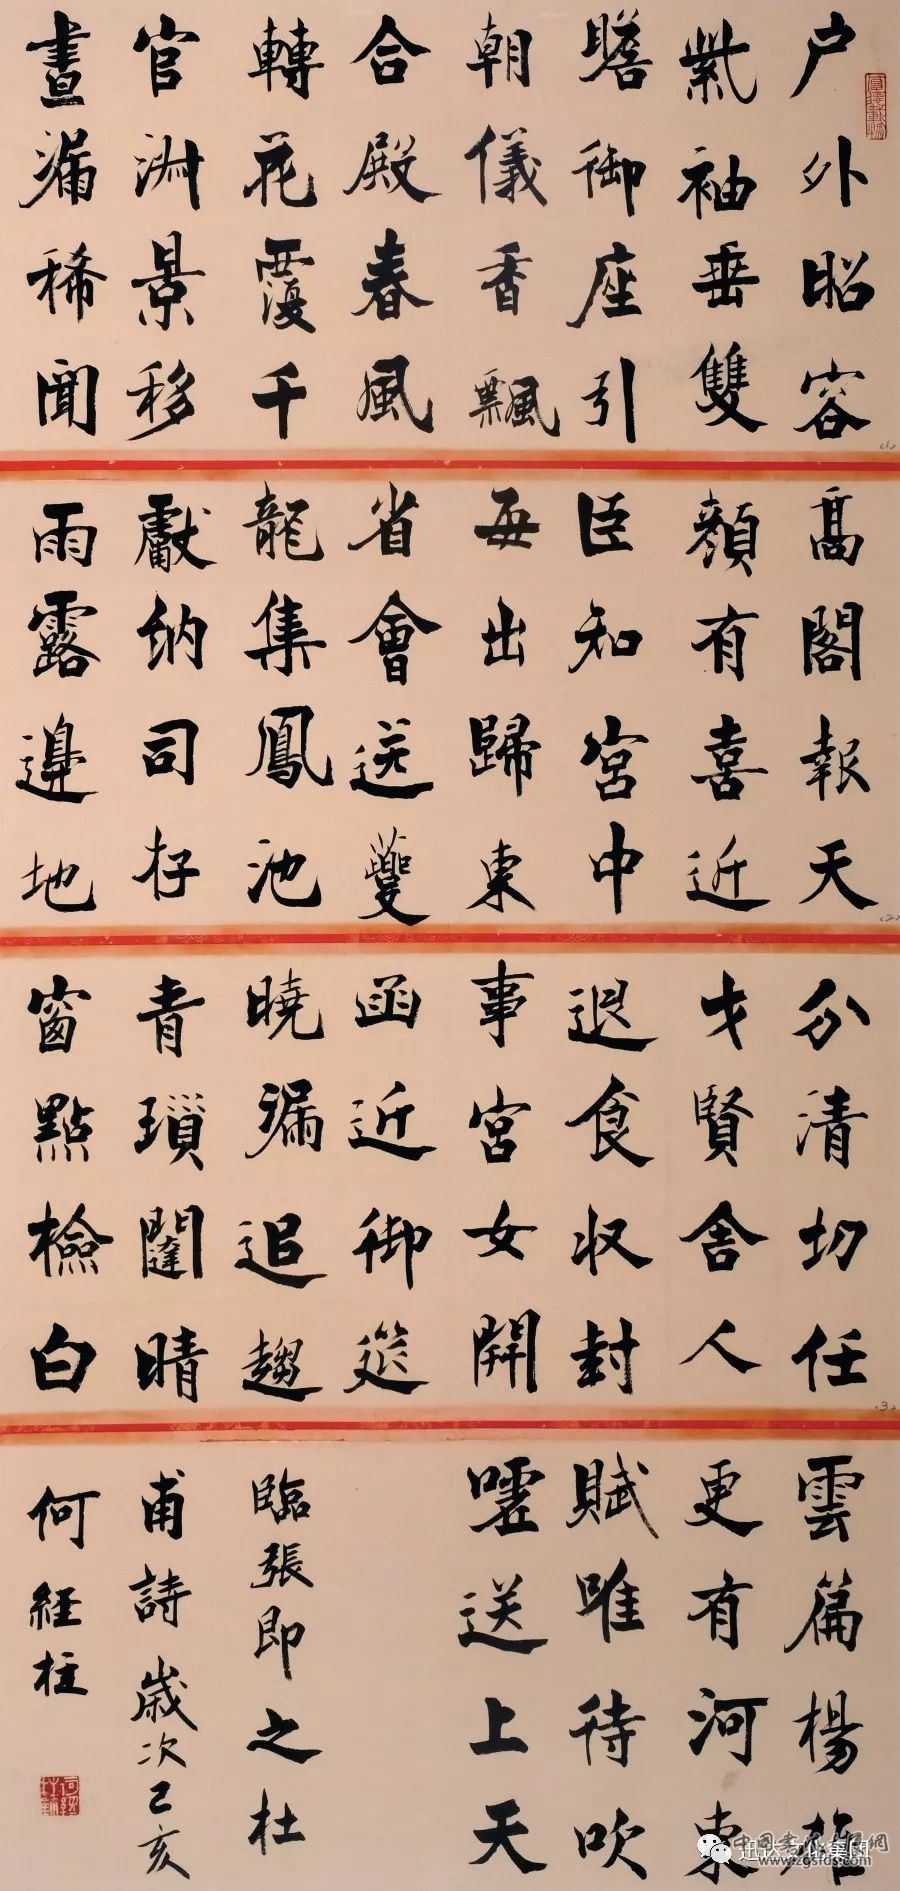 户外昭容
紫袖垂雙
瞻御座引
朝儀香飄
合殿春風
轉花覆千
官淑景移
晝漏稀聞
(1)
高閣報天
顏有喜近
臣知宮中
每出歸東
省會送夔
龍集鳳池
獻納司存
雨露邊地
(2)
分清切任
才賢舍人
退食収封
事宮女開
函近御筵
曉漏追趨
青瑣闥晴
窗點檢白
(3)
雲篇楊雄
更有河東
賦唯待吹
噓送上天
臨張即之杜
甫詩歲次己亥
何経柱
www.zgsfds.com